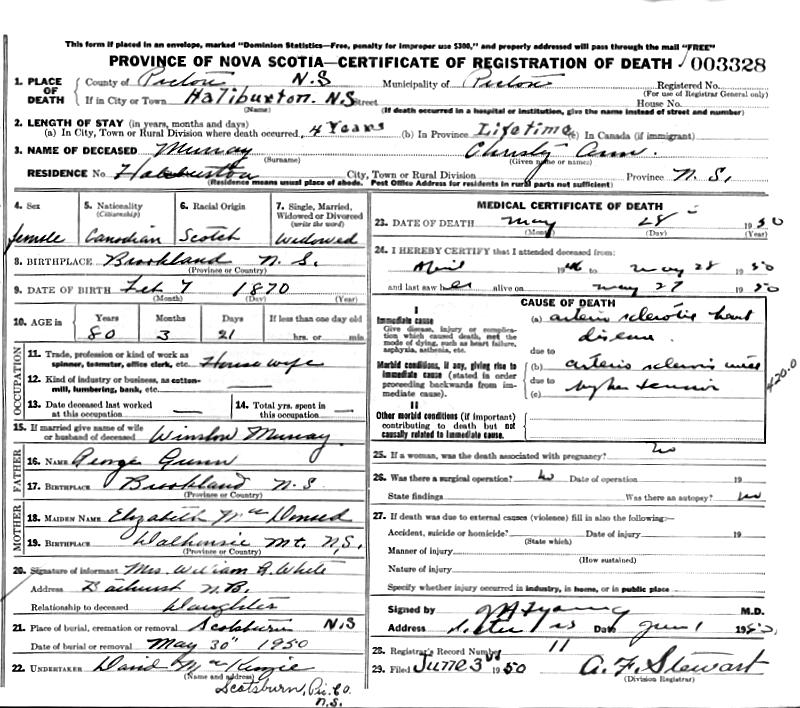 This form if placed in an envelope, marked "Dominion Statistics—Free, penalty for improper use $300," and properly addressed will pass through the mail "FREE"
PROVINCE OF NOVA SCOTIA—CERTIFICATE OF REGISTRATION OF DEATH 003328
1. PLACE OF DEATH { County of Pictou N.S Municipality of Pictou Registered No.
(For use of Registrar General only)
If in City or Town Haliburton. N.S Street House No.
(Name) (If death occurred in a hospital or institution, give the name instead of street and number)
2. LENGTH OF STAY (in years, months and days)
(a) In City, Town or Rural Division where death occurred, 4 Years (b) In Province Lifetime (c) In Canada (if immigrant)
3. NAME OF DECEASED Murray Christy Ann.
(Surname) (Given name or names)
RESIDENCE No. Haliburton City, Town or Rural Division Province N.S.
(Residence means usual place of abode. Post Office Address for residents in rural parts not sufficient)
4. Sex female
5. Nationality (Citizenship) Canadian
6. Racial Origin Scotch
7. Single, Married, Widowed or Divorced (write the word) Widowed
8. BIRTHPLACE Brookland N.S.
(Province or Country)
9. DATE OF BIRTH Feb 7 1870
(Month) (Day) (Year)
10. AGE in Years Months Days If less than one day old
80 3 21 hrs. or min
OCCUPATION
11. Trade, profession or kind of work as spinner, teamster, office clerk, etc. Housewife
12. Kind of industry or business, as cotton-mill, lumbering, bank, etc. —
13. Date deceased last worked at this occupation —
14. Total yrs. spent in this occupation —
15. If married give name of wife or husband of deceased Winslow Murray.
FATHER
16. NAME George Gunn
17. BIRTHPLACE Brookland N.S
(Province or Country)
MOTHER
18. MAIDEN NAME Elizabeth
19. BIRTHPLACE Mt. N.S.
(Province or Country)
20. Signature of informant Mrs. William R. White
Address Bathurst N.B.
Relationship to deceased Daughter
21. Place of burial, cremation or removal Scotsburn N.S
Date of burial or removal May 30" 1950
22. UNDERTAKER David McKenzie
(Name and address)
Scotsburn, Pic. Co.
N.S.
MEDICAL CERTIFICATE OF DEATH
23. DATE OF DEATH May 28 1950
(Month) (Day) (Year)
24. I HEREBY CERTIFY that I attended deceased from:
April 1946 to May 28 1950
and last saw her alive on May 27 1950
CAUSE OF DEATH
I
Immediate cause
Give disease, injury or complication which caused death, not the mode of dying, such as heart failure, asphyxia, asthenia, etc.
(a) arterio sclerotic heart
disease.
due to
Morbid conditions, if any, giving rise to immediate cause (stated in order proceeding backwards from immediate cause).
(b) arterio sclerosis with
due to hypertension
(c)
420.0
II
Other morbid conditions (if important) contributing to death but not causally related to immediate cause.
25. If a woman, was the death associated with pregnancy? no
26. Was there a surgical operation? no Date of operation 19
State findings Was there an autopsy? no
27. If death was due to external causes (violence) fill in also the following:—
Accident, suicide or homicide? Date of injury 19
(State which)
Manner of injury
(How sustained)
Nature of injury
Specify whether injury occurred in industry, in home, or in public place
Signed by Young M.D.
Address Pictou N.S Date June 1 1950.
28. Registrar's Record Number 11
29. Filed June 3rd 1950 A. F. Stewart
(Division Registrar)